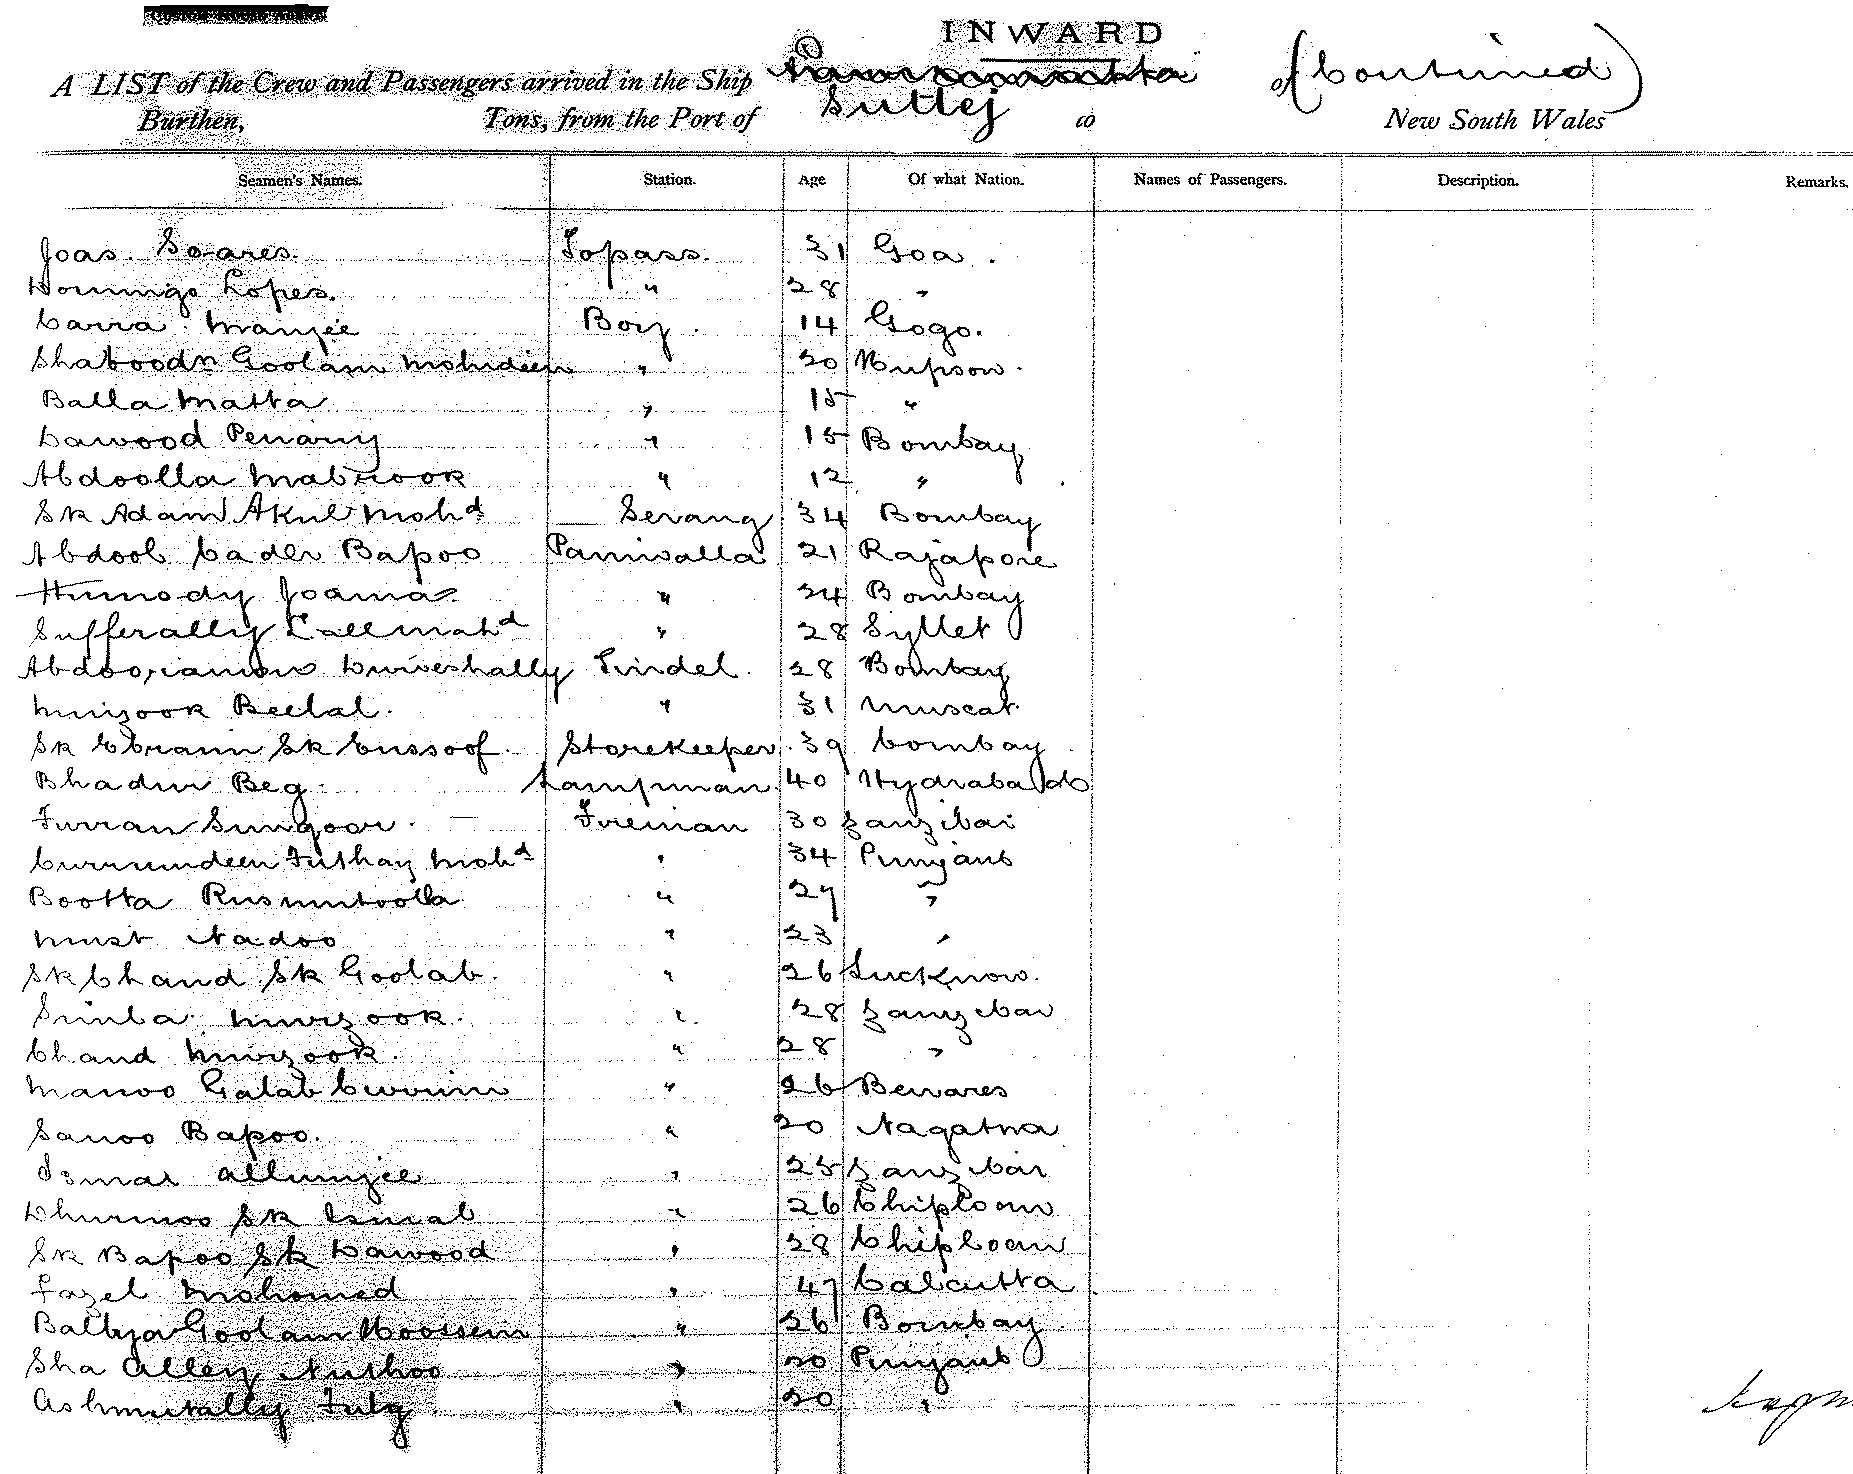 INWARD
A LIST of the Crew and Passengers arrived in the Ship Sutlej of (Continued)
Burthen, Tons, from the Port of to New South Wales
Seamen's Names. Station. Age Of what Nation. Names of Passengers. Description. Remarks.
Joas. Soares. Topass. 31 Goa.
Domingo Lopes. " 28 "
Carra. Manjee Boy. 14 Gogo.
Goolam Mohideen " 20
Balla Matta " 15 "
Dawood " 15 Bombay
Abdoolla Mabrook " 12 "
Sk Adam Akul Mohd Serang 34 Bombay
Abdool Cader Bapoo Paniwalla 21 Rajapore
Joama " 24 Bombay
Sufferally Callmahd " 28 Syllet
Tindel. 28 Bombay
Murzook Beelal. " 31 Muscat.
Sk Ebraim Sk Eussoof. Storekeeper. 39 Bombay
Beg. Lampman. 40 Hydrabad
Furran Sungoor. Fireman 30 Zanzibar
Curumdeen Futhay Mohd " 34 Punjaub
Bootta Rusmutoolla " 27 "
Must Nadoo " 23 "
Sk Chand Sk Goolab. " 26 Lucknow.
Simba Murzook. " 28 Zanzibar
Chand Murzook. " 28 "
Manoo Galab Currim " 26 Benares
Sanoo Bapoo. " 20
Allumjee " 25 Zanzibar
Dhurmoo Sk Ismal " 26 Chiploon
Sk Bapoo Sk Dawood " 28 Chiploon
Fazel Mahomed " 47 Calcutta
Goolam Hoossein " 26 Bombay
Sha Alley Nuthoo " 20 Punjaub
Ashmutally " 20 "